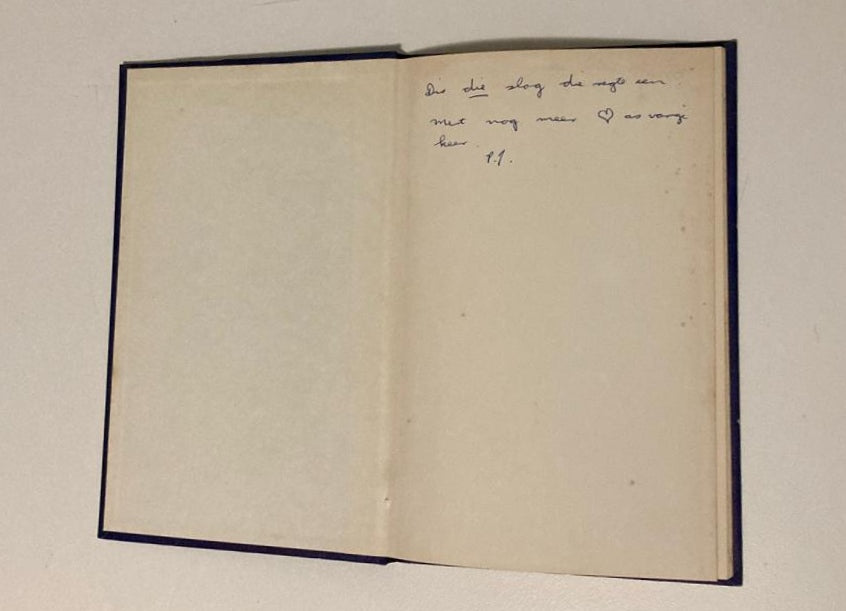 Dis die slag die regte een.
Met nog meer ♡ as vorige
keer.
P.J.